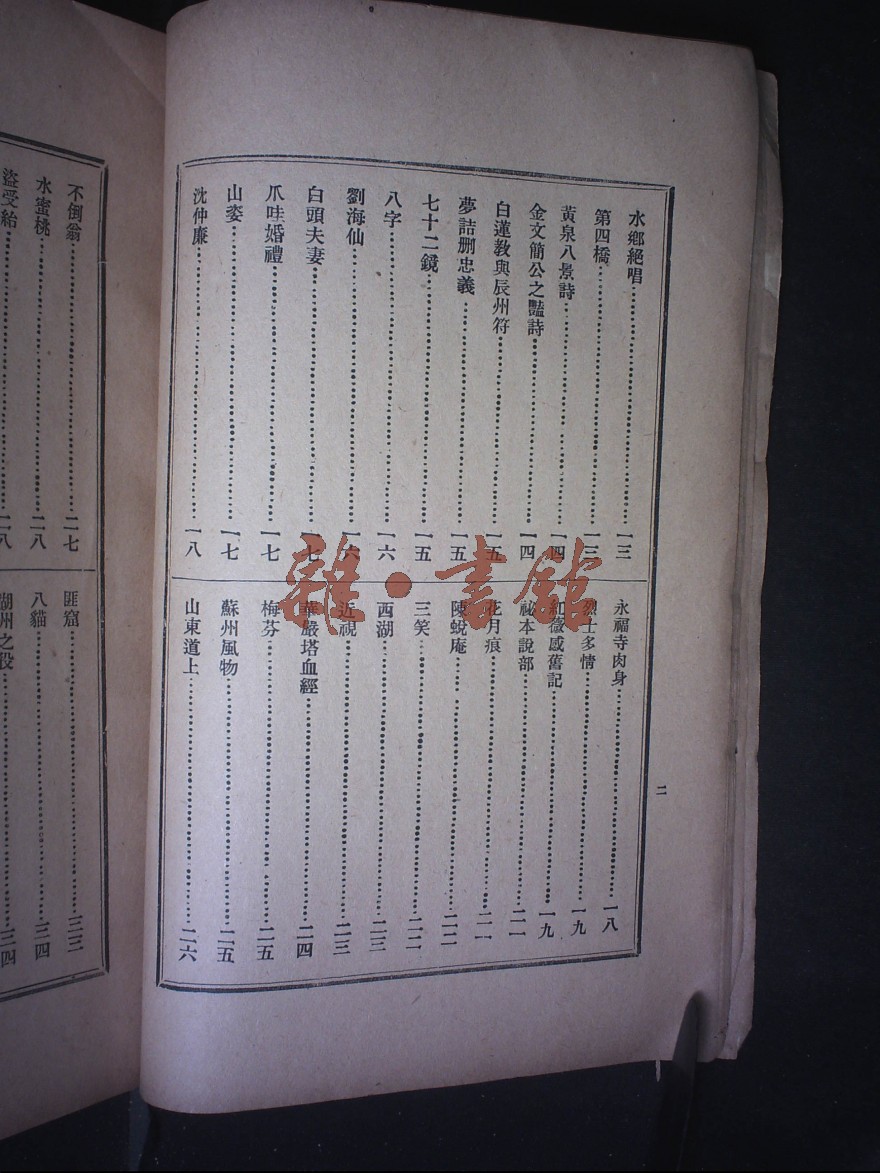 水鄉絕唱……一三
第四橋……一三
黃泉八景詩……一四
金文簡公之豔詩……一四
白蓮教與辰州符……一五
夢詰刪忠義……一五
七十二鏡……一五
八字……一六
劉海仙……一六
白頭夫妻……一七
爪哇婚禮……一七
山姿……一七
沈仲廉……一八
永福寺肉身……一八
烈士多情……一九
紅薇感舊記……一九
祕本說部……二一
花月痕……二一
陳蛻庵……二二
三笑……二二
西湖……二三
近視……二三
華嚴塔血經……二四
梅芬……二五
蘇州風物……二五
山東道上……二六
二
不倒翁……二七
水蜜桃……二八
盜受給……二八
匪窟……三三
八貓……三四
湖州之役……三四
雜·書館